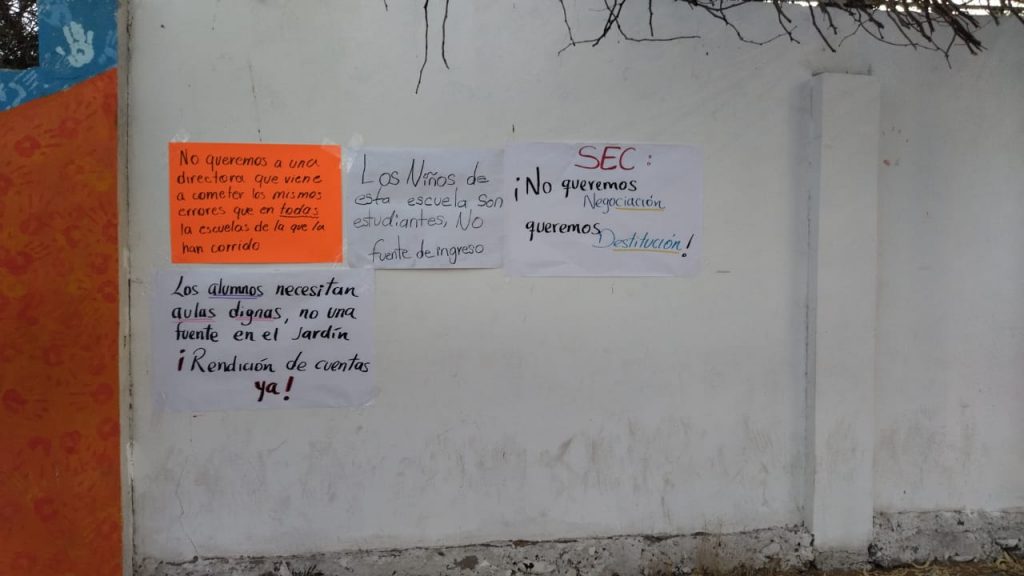 No queremos a una
directora que viene
a cometer los mismos
errores que en todas
la escuelas de la que la
han corrido
Los Niños de
esta escuela son
estudiantes, No
fuente de ingreso
SEC:
¡No queremos
Negociación
queremos
Destitución!
Los alumnos necesitan
aulas dignas, no una
fuente en el Jardín
¡Rendición de cuentas
ya!